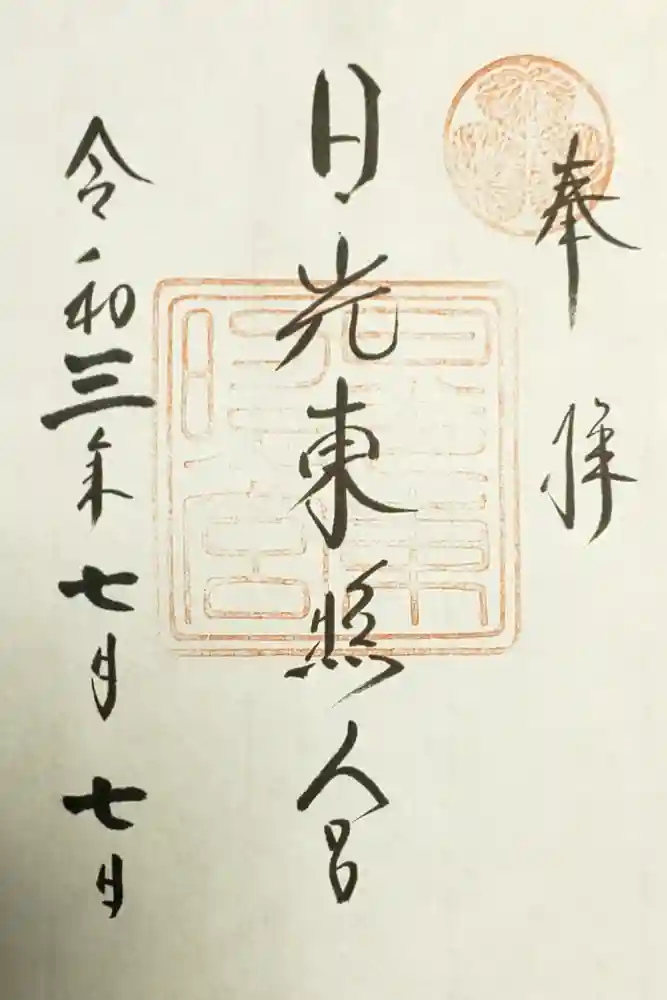 奉拝
日光東照宮
令和三年七月七日